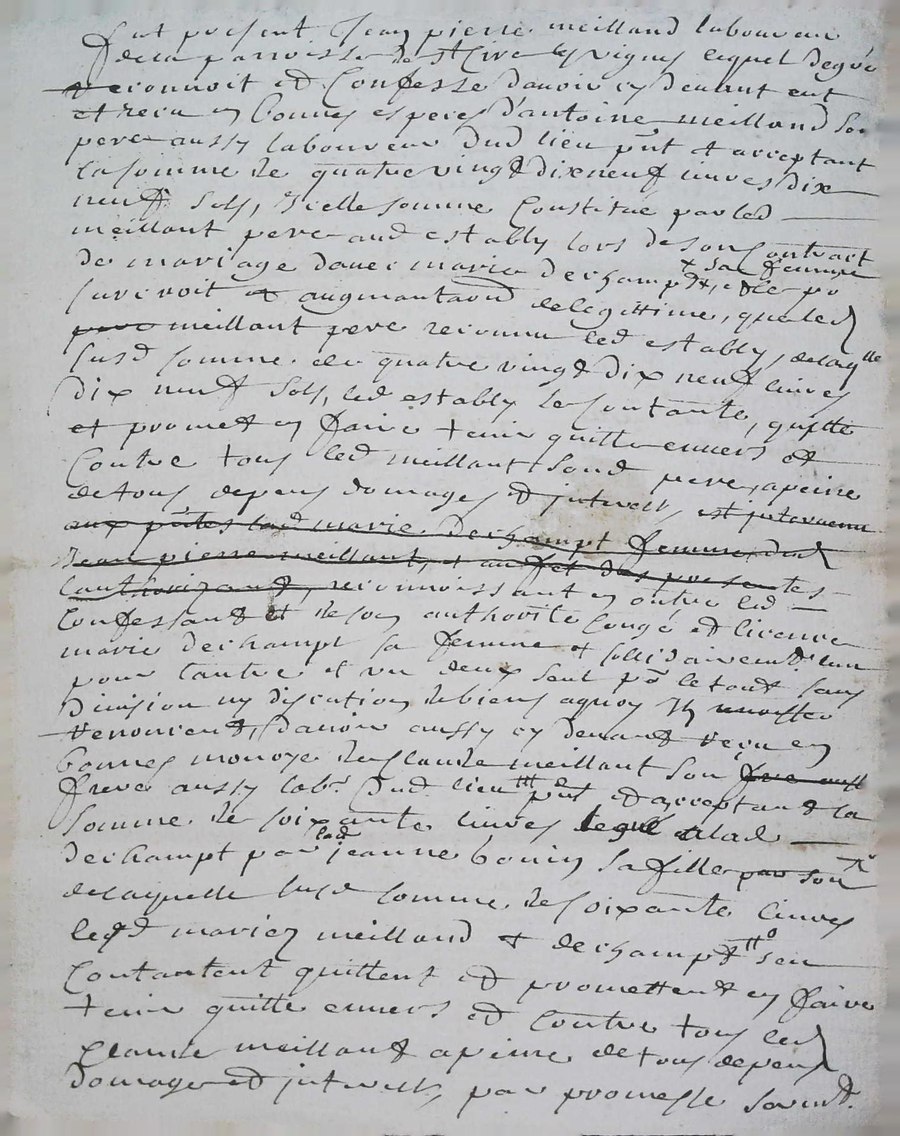 fut present Jean pierre meilland laboureur
de la parroisse de St Cire les vignes lequel de gré
reconnoit et Confesse d'avoir cy devant eut
et recu en bonnes especes d'antoine meilland son
pere aussy laboureur dud lieu pnt et acceptant
la somme de quatre vingt dix neuf livres dix
neuf sols, Icelle somme Constitue par led
meillant pere aud estably lors de son Contract
de mariage avec marie dechampt, sa femme
survenoit et augmentaond de legittime, que led
pere meillant pere reconnu led estably, de laqlle
susd somme de quatre vingt dix neuf livres
dix neuf sols, led estably se contante, quitte
et promet en faire tenir quitte envers et
Contre tous led meillant sond pere, a peine
de tous depens domages et interets, est intervenu
aux pntes lad marie dechampt femme dud
Jean pierre meillant, et au fet des presentes
l'authorizant, reconnoissant en outre led
Confessant et de son authorité Congé et licence
marie dechampt sa femme et sollidairement l'un
pour l'autre et un deux seul pr le tout sans
division ny discution de biens a quoy ils
renoncent, d'avoir aussy cy devant reçu en
bonnes monoye de Claude meillant son
frere aussy labr dud lieu pnt et acceptant la
somme de soixante livres legué a lad
dechampt par lad jeanne bouin sa fille par son
de laquelle susd somme de soixante livres
lesd mariez meilland et dechampt sen
Contantent quittent et promettent en faire
tenir quitte envers et Contre tous led
Claude meillant a peine de tous depens
domages et interets, par promesse serment.